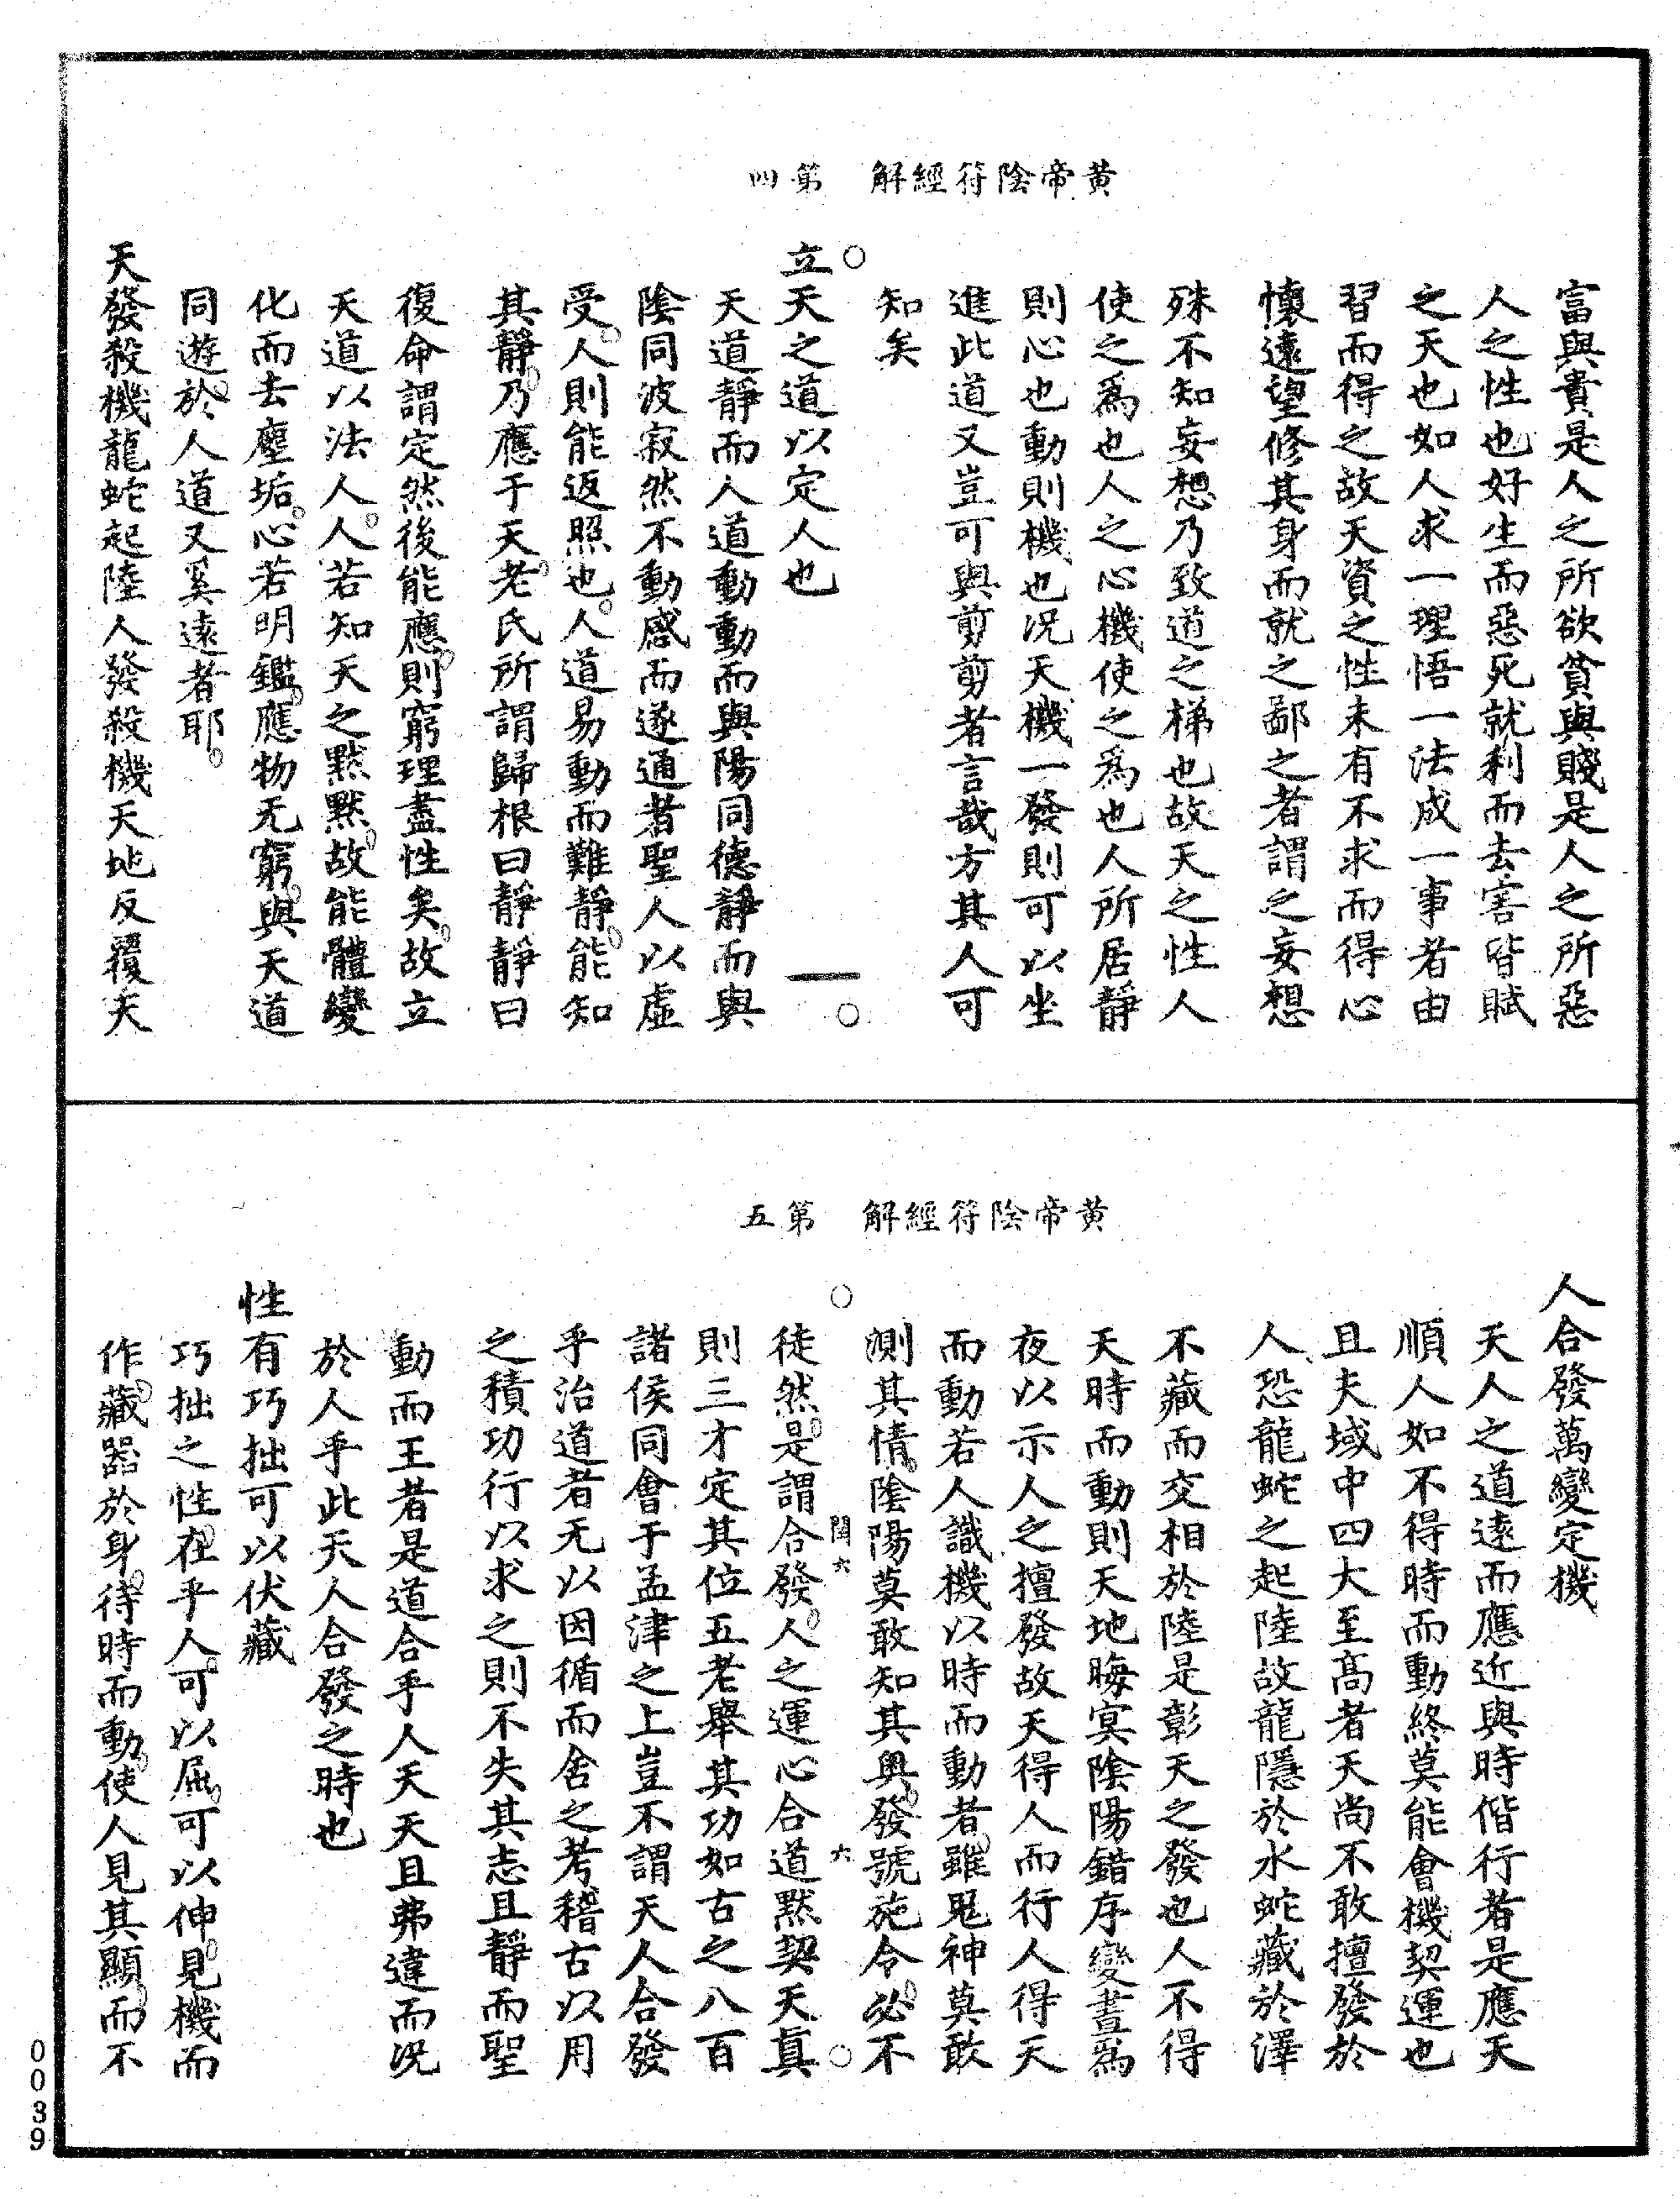 黃帝陰符經解　第四
富與貴是人之所欲貧與賤是人之所惡
人之性也好生而惡死就利而去害皆賦
之天也如人求一理悟一法成一事者由
習而得之故天資之性未有不求而得心
懷遠望修其身而就之鄙之者謂之妄想
殊不知妄想乃致道之梯也故天之性人
使之爲也人之心機使之爲也人所居靜
則心也動則機也况天機一發則可以坐
進此道又豈可與剪剪者言哉方其人可
知矣
立天之道以定人也
天道靜而人道動動而與陽同德靜而與
陰同波寂然不動感而遂通者聖人以虛
受人則能返照也人道易動而難靜能知
其靜乃應于天老氏所謂歸根曰靜靜曰
復命謂定然後能應則窮理盡性矣故立
天道以法人人若知天之默默故能體變
化而去塵垢心若明鑑應物无窮與天道
同遊於人道又奚遠者耶
天發殺機龍蛇起陸人發殺機天地反覆天
黃帝陰符經解　第五
人合發萬變定機
天人之道遠而應近與時偕行者是應天
順人如不得時而動終莫能會機契運也
且夫域中四大至高者天尚不敢擅發於
人恐龍蛇之起陸故龍隱於水蛇藏於澤
不藏而交相於陸是彰天之發也人不得
天時而動則天地晦冥陰陽錯序變晝爲
夜以示人之擅發故天得人而行人得天
而動若人識機以時而動者雖鬼神莫敢
測其情陰陽莫敢知其奧發號施令必不
閏六　六
徒然是謂合發人之運心合道默契天真
則三才定其位五老舉其功如古之八百
諸侯同會于孟津之上豈不謂天人合發
乎治道者无以因循而舍之考稽古以用
之積功行以求之則不失其志且靜而聖
動而王者是道合乎人天天且弗違而况
於人乎此天人合發之時也
性有巧拙可以伏藏
巧拙之性在乎人可以屈可以伸見機而
作藏器於身待時而動使人見其顯而不
0039